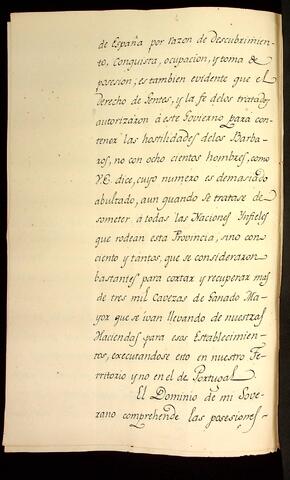 de España por razon de descubrimien-
to, conquista, ocupacion, y toma de
posesion; es tambien evidente que el
derecho de Gentes, y la fe de los tratados
autorizaron á este Govierno para con-
tener las hostilidades delos Barba-
ros, no con ocho cientos hombres, como
V.E. dice, cuyo numero es demasiado
abultado, aun quando se tratase de
someter á todas las Naciones Ynfieles
que rodean esta Provincia, sino con
ciento y tantos, que se consideraron
bastantes para cortar y recuperar mas
de tres mil Cavezas de Ganado Ma-
yor que se ivan llevando de nuestras
Haciendas para esos Establecimien-
tos, executandose esto en nuestro Te-
rritorio y no en el de Portugal.
El Dominio de mi Sove-
rano comprehende las posesiones-